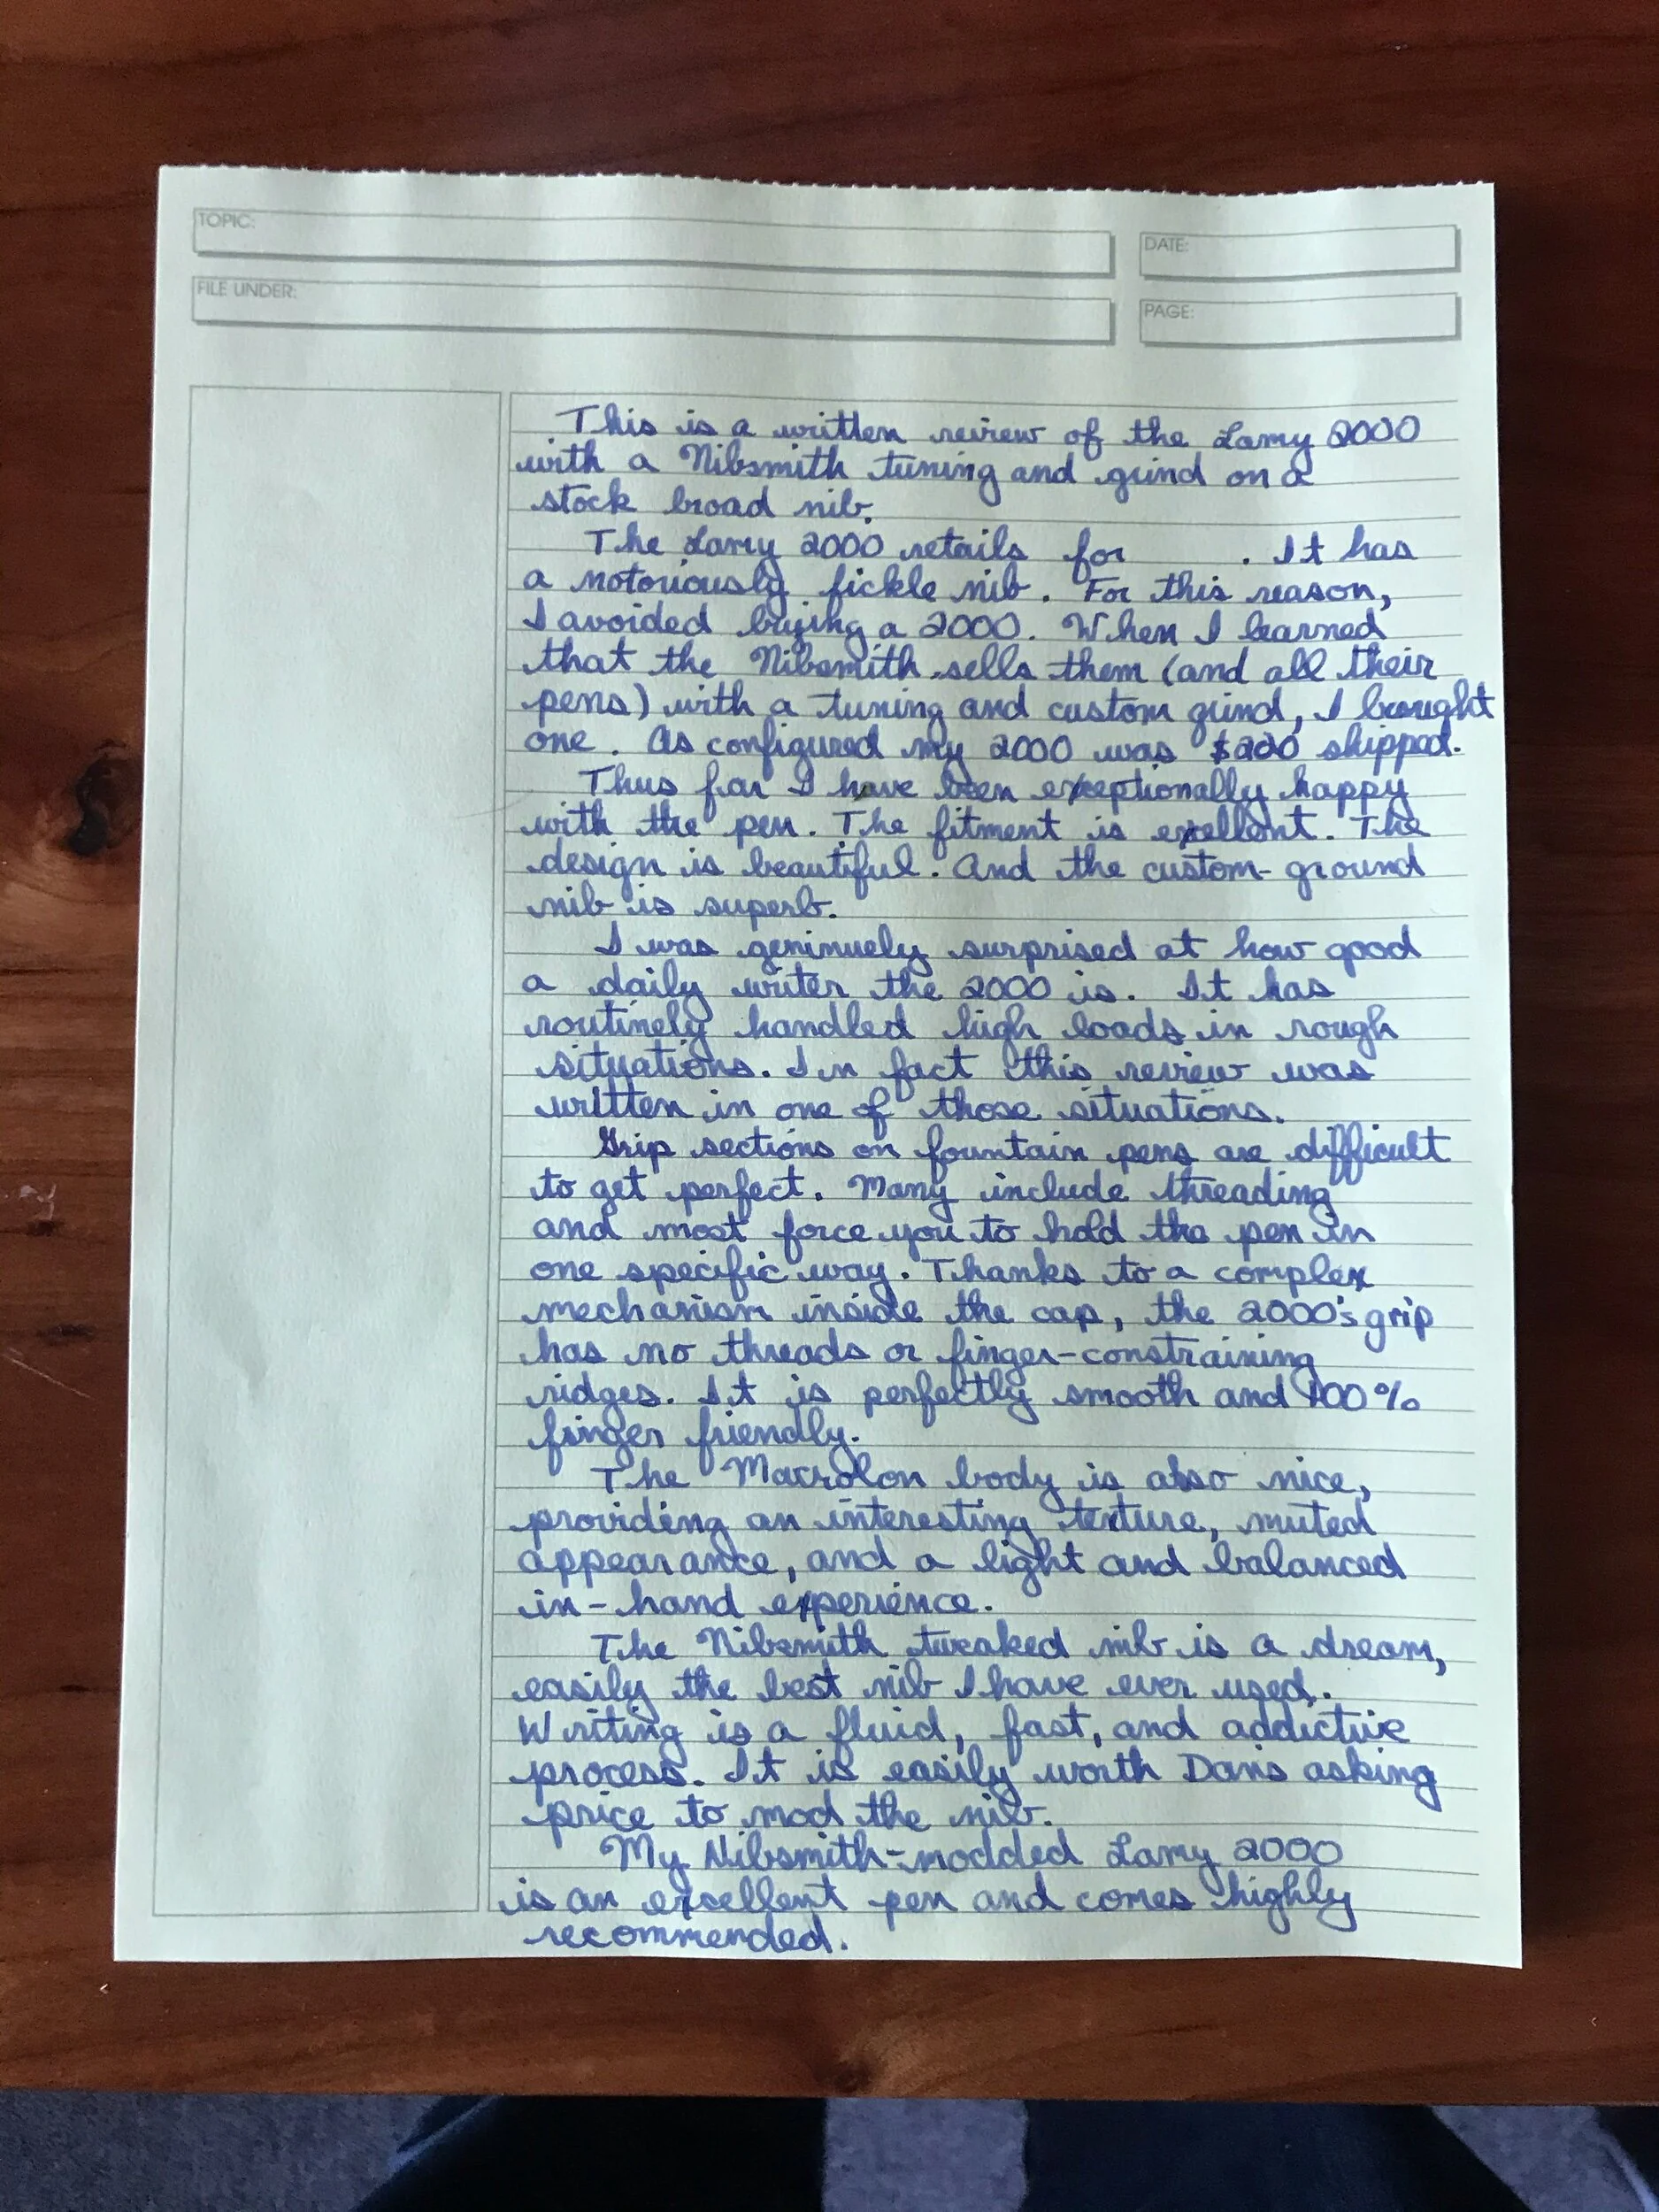 TOPIC:
DATE:
FILE UNDER:
PAGE:
This is a written review of the Lamy 2000
with a Nibsmith tuning and grind on a
stock broad nib.
The Lamy 2000 retails for . It has
a notoriously fickle nib. For this reason,
I avoided buying a 2000. When I learned
that the Nibsmith sells them (and all their
pens) with a tuning and custom grind, I brought
one. As configured my 2000 was shipped.
Thus far I have been exceptionally happy
with the pen. The fitment is excellent. The
design is beautiful. And the custom-ground
nib is superb.
I was geninuely surprised at how good
a daily writer the 2000 is. It has
routinely handled high loads in rough
situations. In fact this review was
written in one of those situations.
Grip sections on fountain pens are difficult
to get perfect. Many include threading
and most force you to hold the pen in
one specific way. Thanks to a complex
mechanism inside the cap, the 2000's grip
has no threads or finger-constraining
ridges. It is perfectly smooth and 100%
finger friendly.
The Macrolon body is also nice,
providing an interesting texture, muted
appearance, and a light and balanced
in-hand experience.
The Nibsmith tweaked nib is a dream,
easily the best nib I have ever used.
Writing is a fluid, fast, and addictive
process. It is easily worth Dans asking
price to mod the nib.
My Nibsmith-modded Lamy 2000
is an excellent pen and comes highly
recommended.